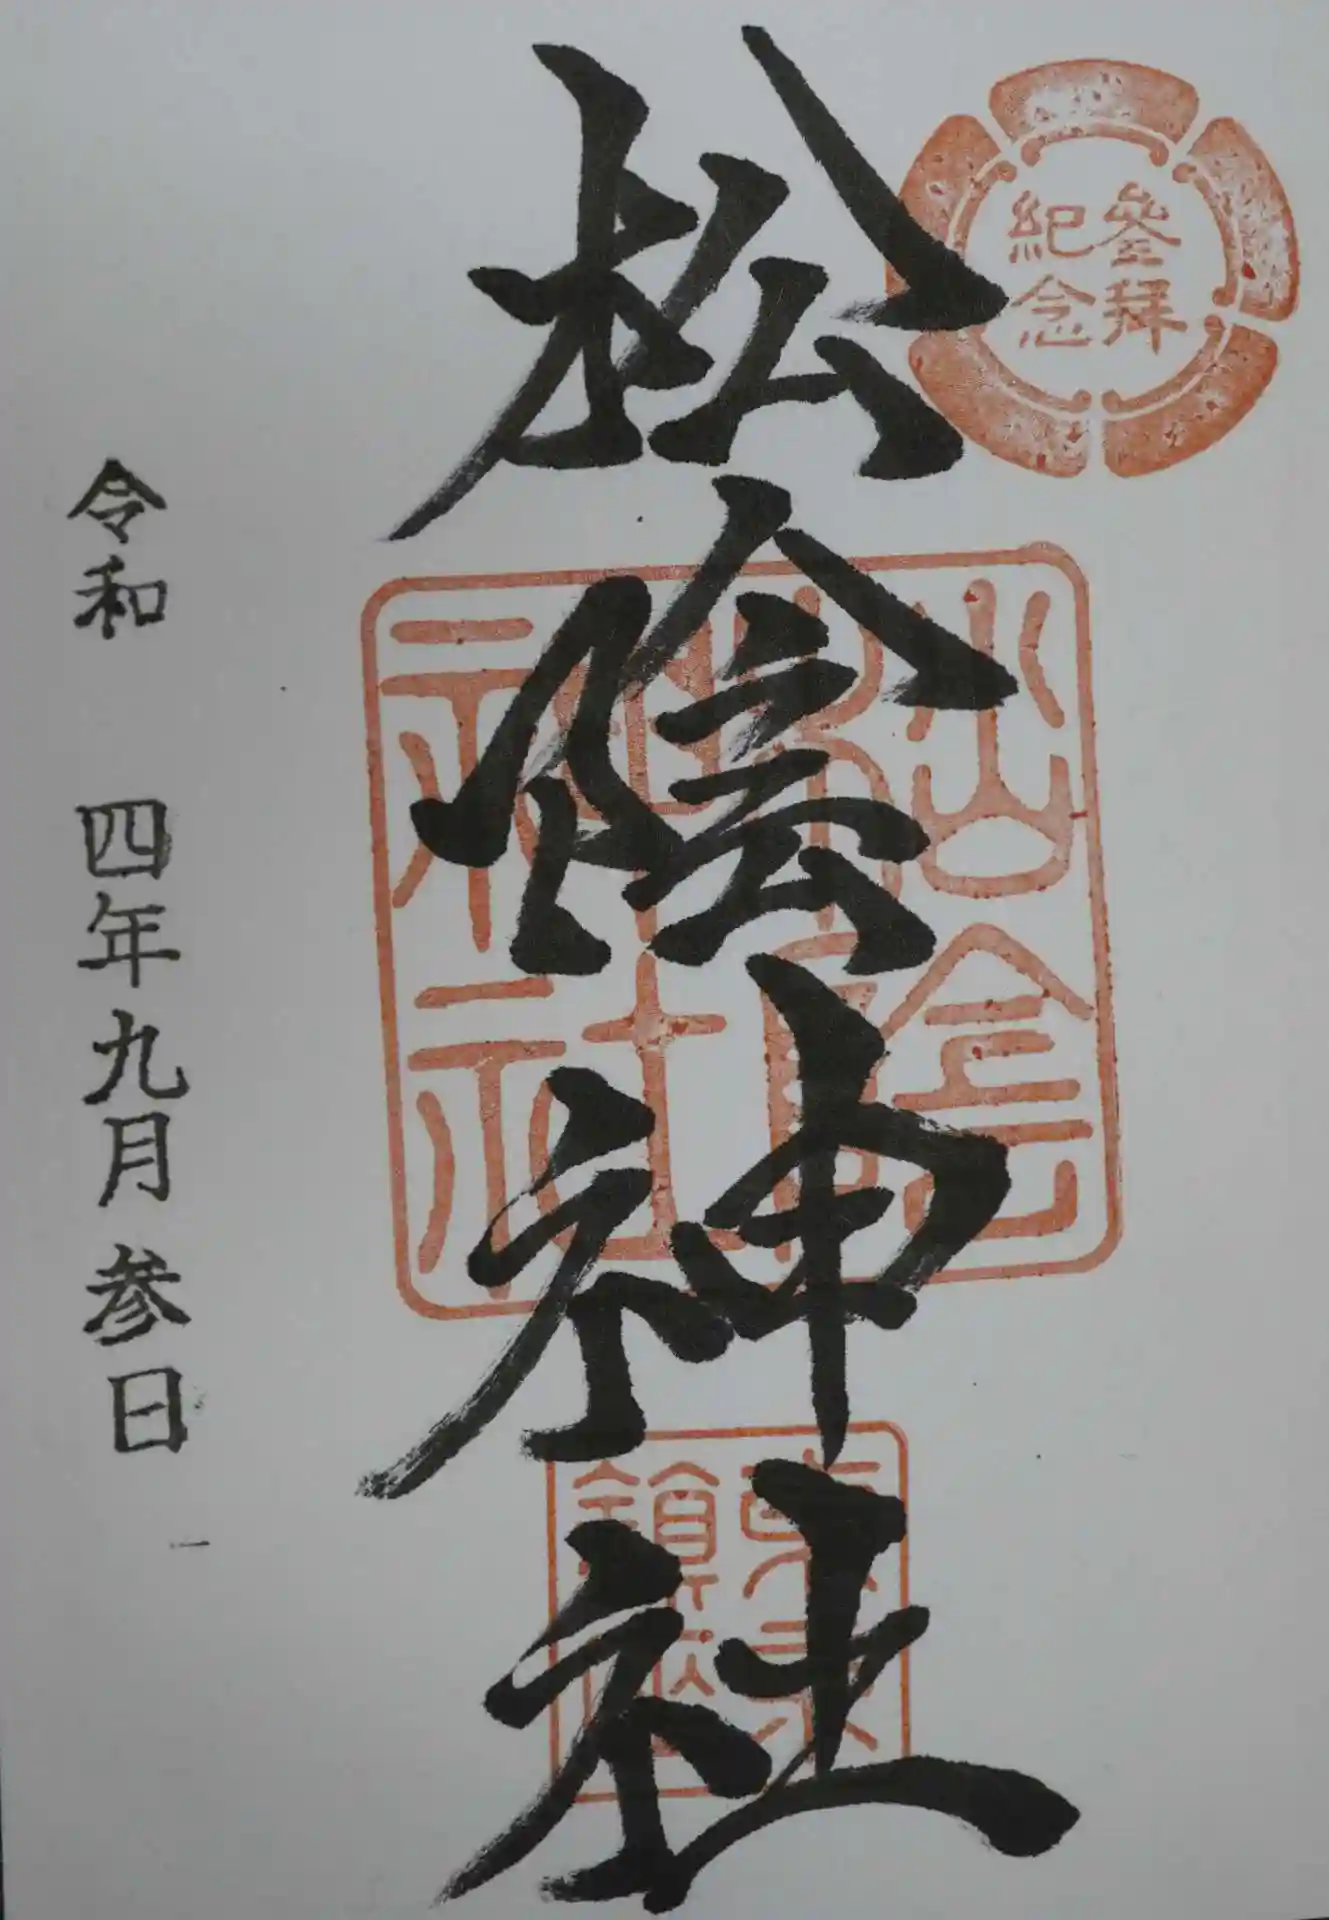 參拜
紀念
松陰神社
松陰
神社
令和 四年九月参日